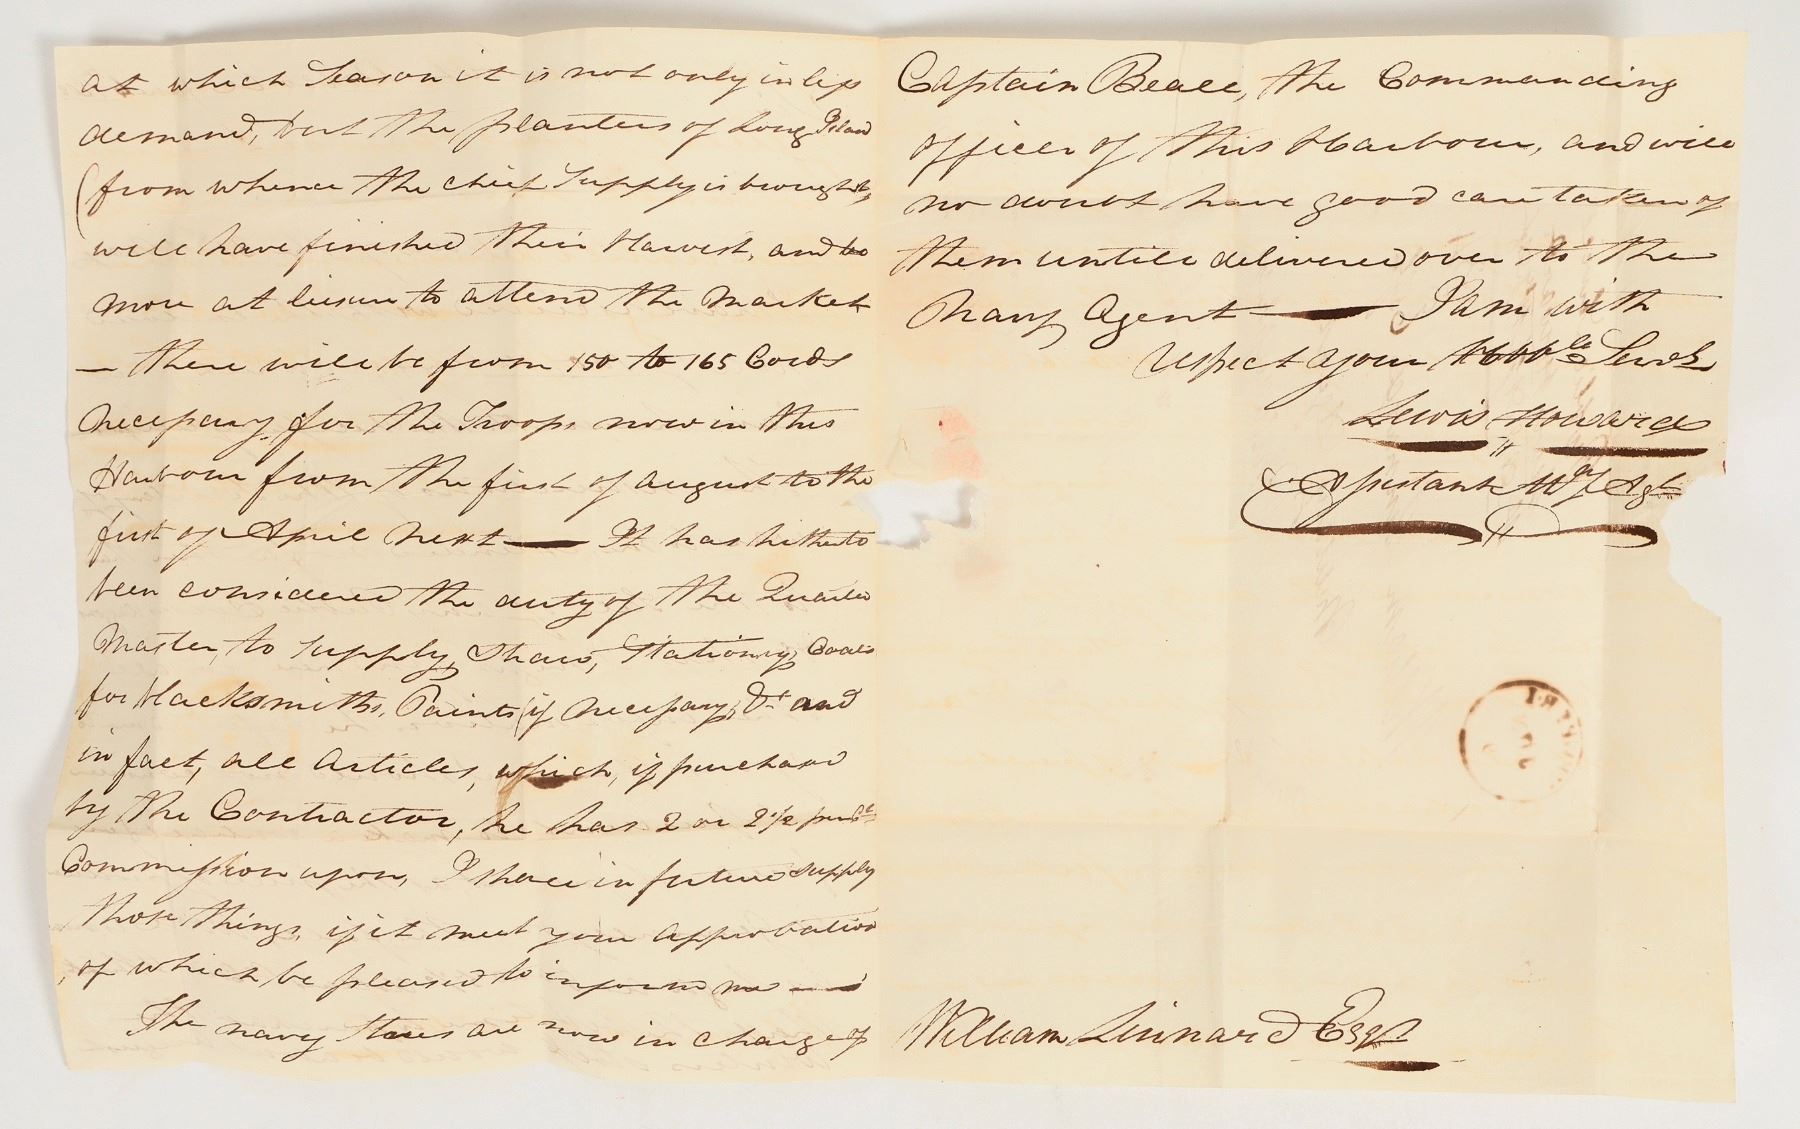 at which Season it is not only in less
demand, but the planters of Long Island
(from whence the chief Supply is brought,
will have finished their Harvest, and be
more at leisure to attend the Market
— there will be from 150 to 165 Cords
necessary for the Troops now in this
Harbour from the first of August to the
first of April next — It has hitherto
been considered the duty of the Quarter
Master, to supply, Straw, Stationary, Coals
for blacksmiths, Paints (if necessary) &c and
in fact, all Articles, which, if purchased
by the Contractor, he has 2 or 2 1/2 pr Ct
Commission upon, I shall in future supply
those things, if it meet your approbation
of which be pleased to inform me —
The navy stores are now in charge of
Captain Beall, the Commanding
officer of this Harbour, and will
no doubt have good care taken of
them untill delivered over to the
Navy Agent — I am with
respect your Hble Servt
Lewis Howard
Assistant My Agt
William Linnard Esqr